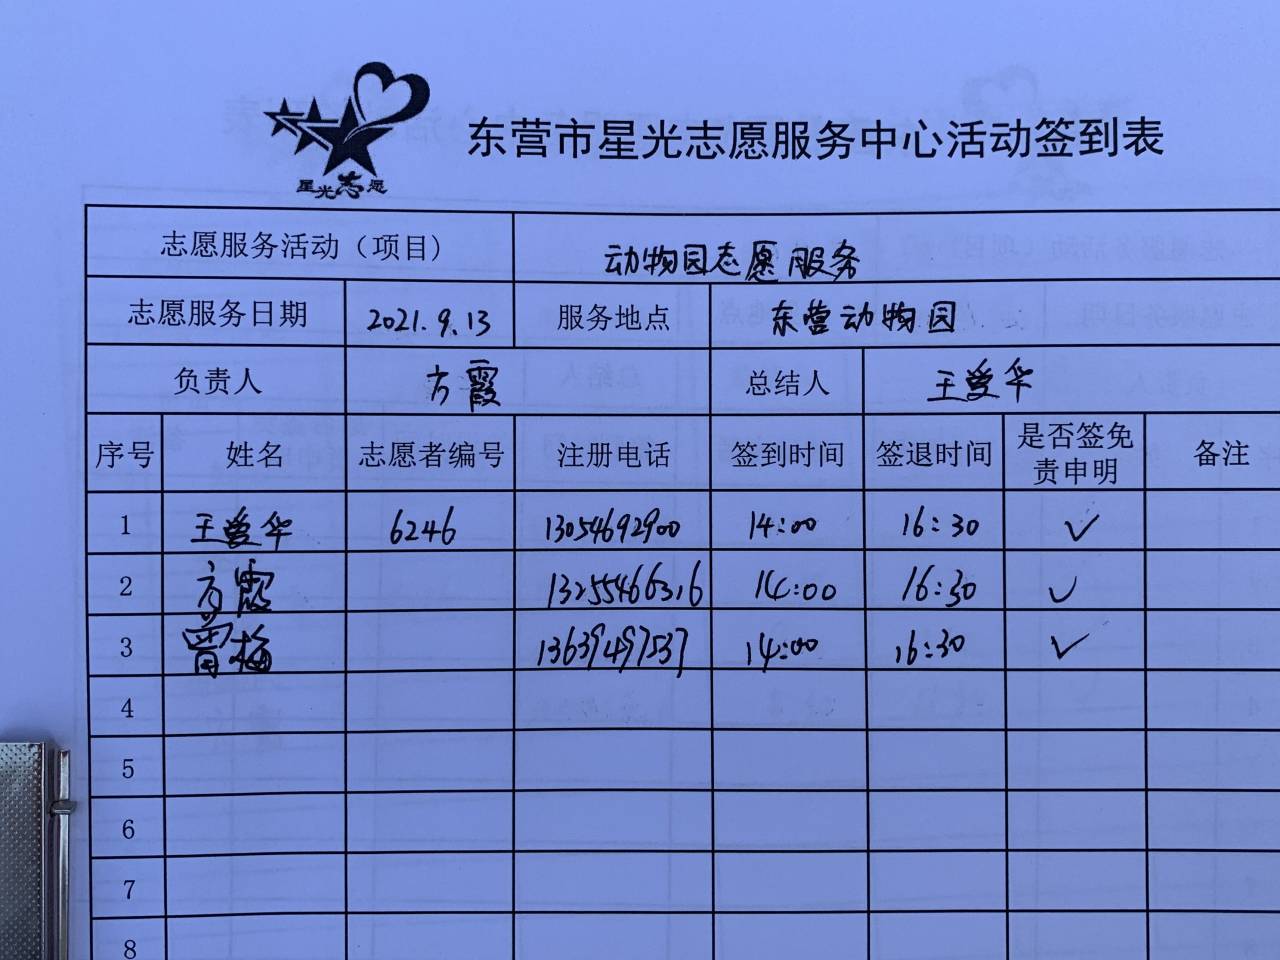 星光志愿
东营市星光志愿服务中心活动签到表
志愿服务活动（项目） 动物园志愿服务
志愿服务日期 2021.9.13 服务地点 东营动物园
负责人 方霞 总结人 王爱华
序号 姓名 志愿者编号 注册电话 签到时间 签退时间 是否签免责申明 备注
1 王爱华 6246 13054692900 14:00 16:30 ✓
2 方霞 13255466316 14:00 16:30 ✓
3 贾梅 13639497537 14:00 16:30 ✓
4
5
6
7
8